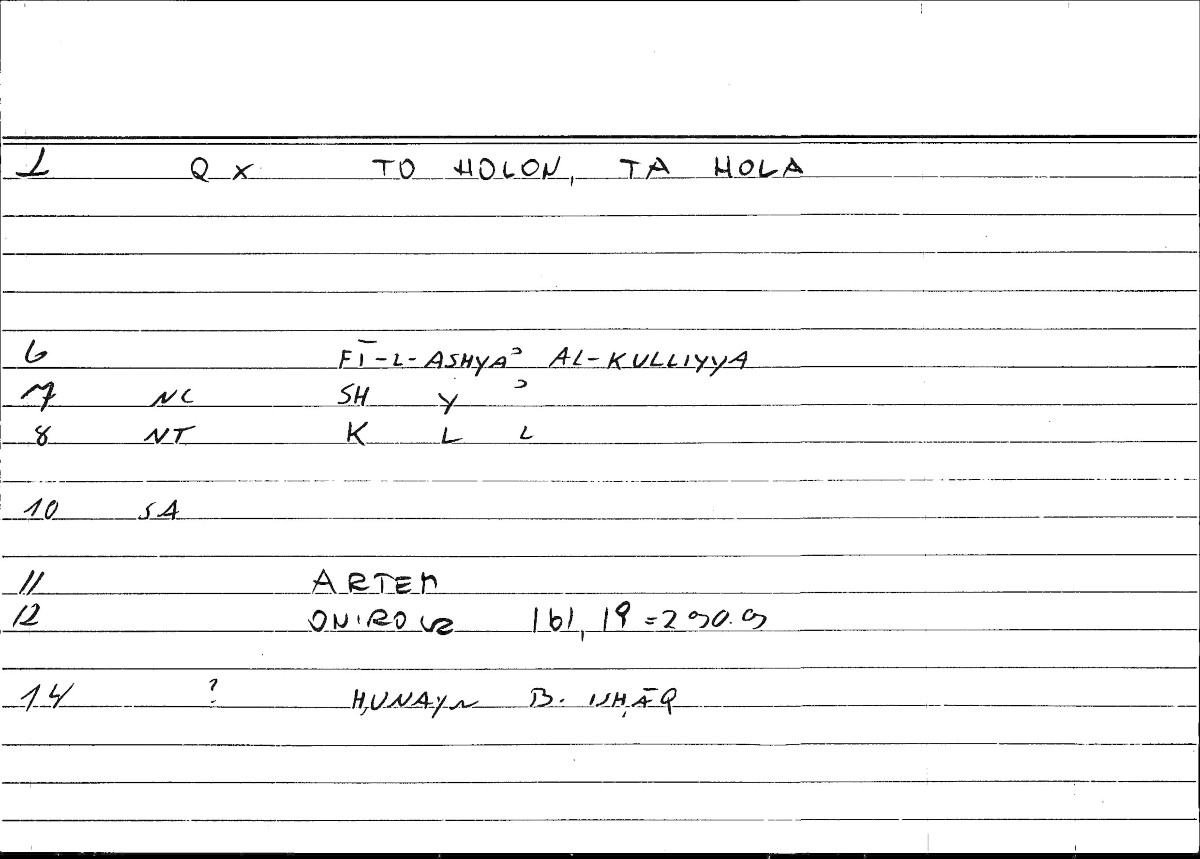 1 Q x TO HOLON, TA HOLA
6 FĪ-L-ASHYAʾ AL-KULLIYYA
7 NC SH Y ʾ
8 NT K L L
10 SA
11 ARTEM
12 161, 19 = 290.9
14 ? ḤUNAYN B. ISḤĀQ